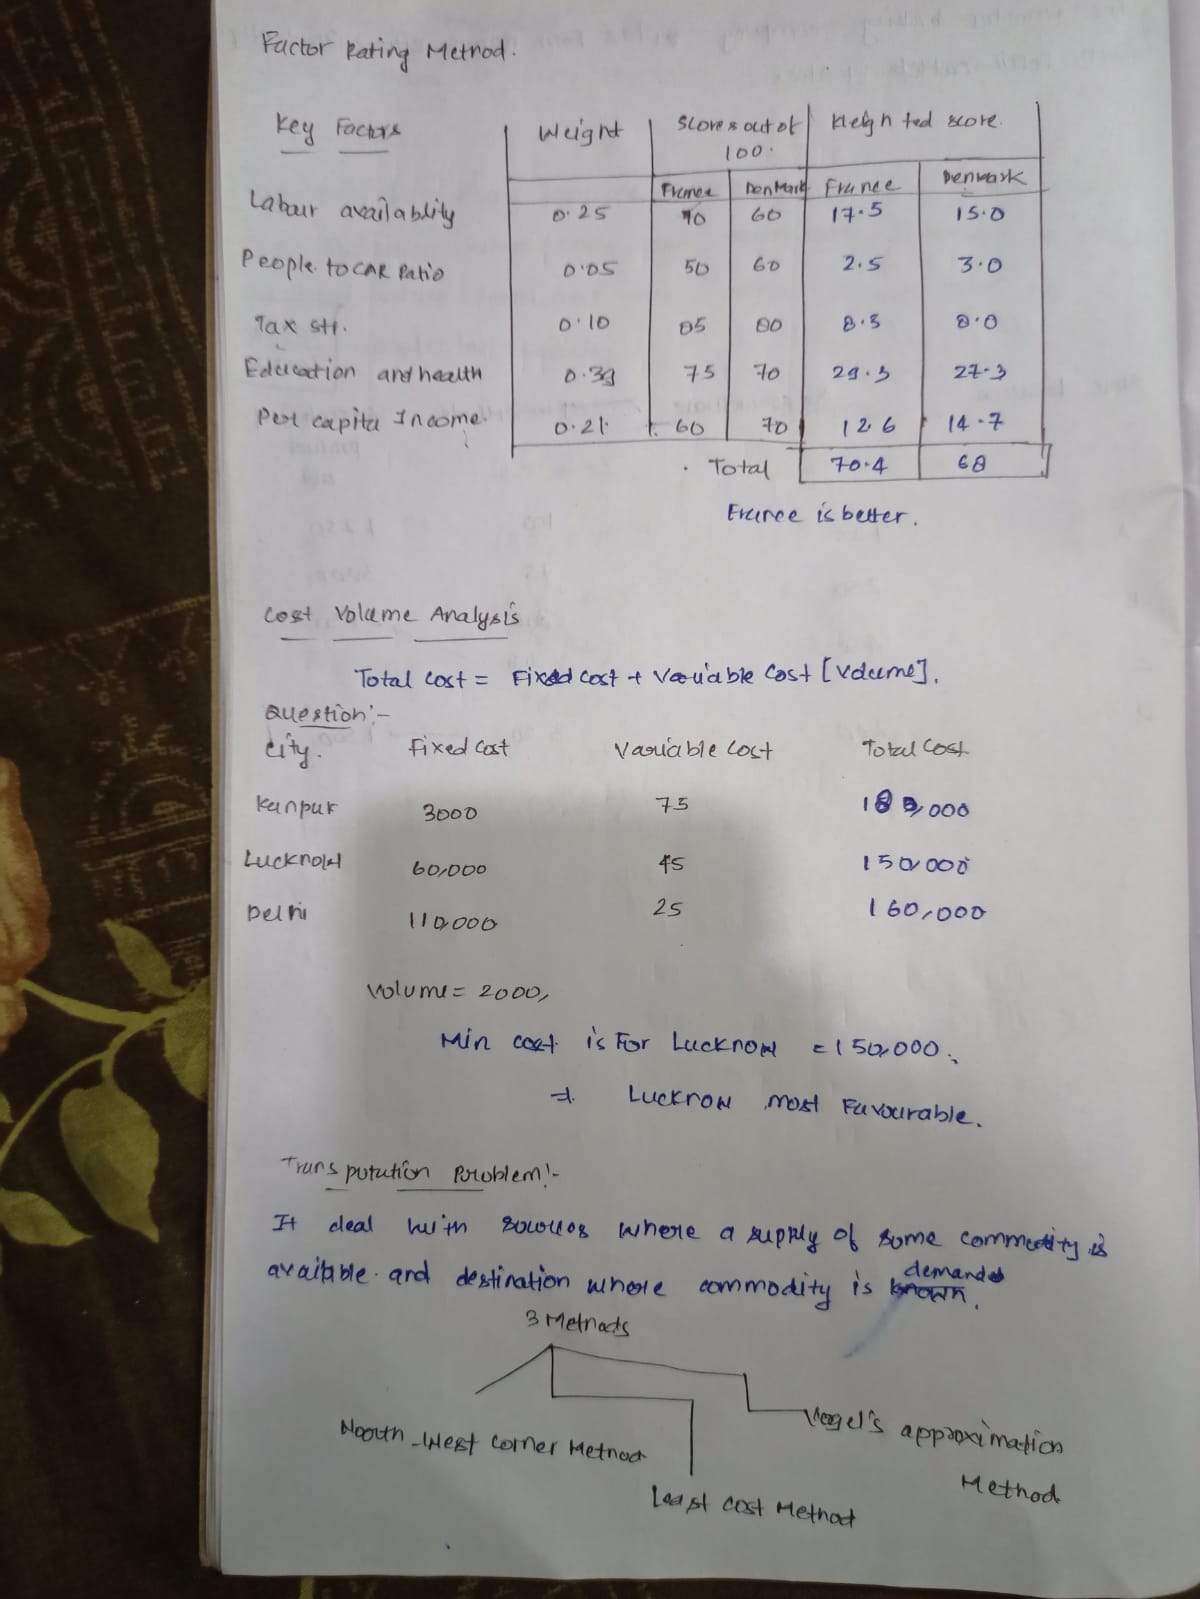 Factor Rating Method.
Key Factors Weight Scores out of 100. Weighted score.
France Denmark France Denmark
Labour availablity 0.25 70 60 17.5 15.0
People to CAR Ratio 0.05 50 60 2.5 3.0
Tax str. 0.10 85 80 8.5 8.0
Education and health 0.39 75 70 29.3 27.3
Per capita Income. 0.21 60 70 12.6 14.7
Total 70.4 68
France is better.
Cost Volume Analysis
Total cost = Fixed cost + Variable Cost [Volume].
Question:-
City. Fixed Cost Variable Cost Total Cost.
Kanpur 3000 75 180,000
Lucknow 60,000 45 150,000
Delhi 110,000 25 160,000
Volume = 2000,
Min cost is For Lucknow = 150,000.
Lucknow most Favourable.
Transputation Problem:-
It deal with where a supply of some commodity is
available and destination where commodity is known. demanded
3 Methods
North-West Corner Method
Vogel's approximation
Method
Least cost Method